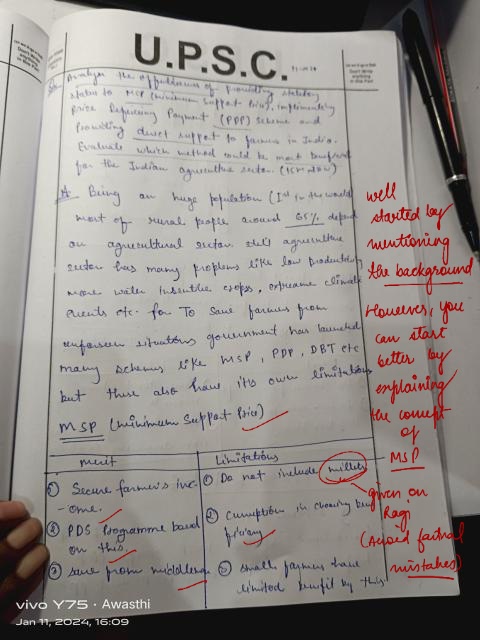 U.P.S.C.
Don't Write
anything
in this Part
Analyse the of providing statutory
status to MSP (Minimum Support Price), implementing
Price Deficiency Payment (PDP) Scheme and
Providing direct support to farmers in India.
Evaluate which method could be most beneficial
for the Indian agriculture sector.
A Being an huge population (Ist in the world
most of rural people around 65% depend
on agricultural sector. still agriculture
sector has many problems like low productivity
more water crops, climate
events etc. for To save farmers from
situations government has launched
many schemes like MSP, PDP, DBT etc
but these also have its own limitations
MSP (Minimum Support Price)
merit
Limitations
① Secure farmer's inc
-ome.
② PDS Programme based
on this.
③ save from
① Do not include millets
② in
③ smalls farmers have
limited benefit by this
well
started by
mentioning
the background
However, you
can start
better by
explaining
the concept
of
MSP
given on
Ragi
(Avoid factual
mistakes)
vivo Y75 · Awasthi
Jan 11, 2024, 16:09